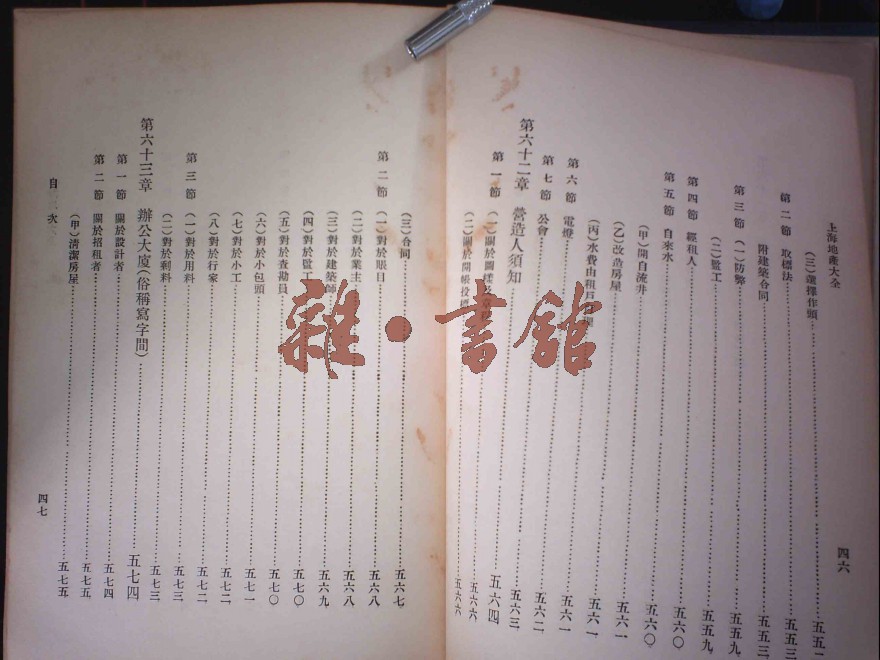 上海地產大全
四六
(三)選擇作頭 五五二
第二節 取標法 五五三
附建築合同 五五三
第三節 (一)防弊 五五九
(二)監工 五五九
第四節 經租人 五六〇
第五節 自來水 五六〇
(甲)開自流井 五六一
(乙)改造房屋 五六一
(丙)水費由租戶 五六一
第六節 電燈 五六二
第七節 公會 五六三
第六十二章 營造人須知 五六四
第一節 (一)關於 五六六
(二)關於開帳投標 五六六
(三)合同 五六七
第二節 (一)對於賬目 五六八
(二)對於業主 五六八
(三)對於建築師 五六九
(四)對於監工 五七〇
(五)對於查勘員 五七〇
(六)對於小包頭 五七一
(七)對於小工 五七二
(八)對於行家 五七二
第三節 (一)對於用料 五七三
(二)對於剩料 五七三
第六十三章 辦公大廈(俗稱寫字間) 五七四
第一節 關於設計者 五七四
第二節 關於招租者 五七五
(甲)清潔房屋 五七五
目次
四七
雜·書館